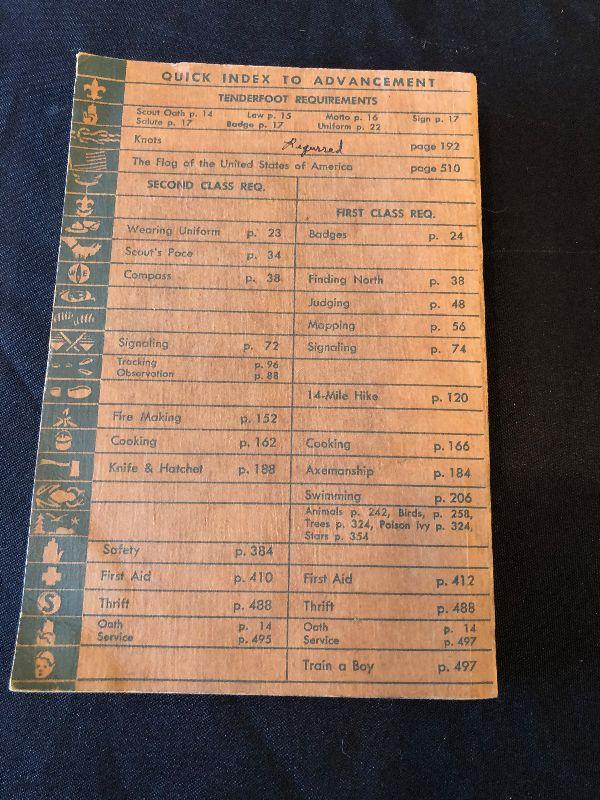 QUICK INDEX TO ADVANCEMENT
TENDERFOOT REQUIREMENTS
Scout Oath p. 14 Law p. 15 Motto p. 16 Sign p. 17
Salute p. 17 Badge p. 17 Uniform p. 22
Knots Requrred page 192
The Flag of the United States of America page 510
SECOND CLASS REQ.
FIRST CLASS REQ.
Wearing Uniform p. 23 Badges p. 24
Scout's Pace p. 34
Compass p. 38 Finding North p. 38
Judging p. 48
Mapping p. 56
Signaling p. 72 Signaling p. 74
Tracking p. 96
Observation p. 88
14-Mile Hike p. 120
Fire Making p. 152
Cooking p. 162 Cooking p. 166
Knife & Hatchet p. 188 Axemanship p. 184
Swimming p. 206
Animals p. 242, Birds, p. 258,
Trees p. 324, Poison Ivy p. 324,
Stars p. 354
Safety p. 384
First Aid p. 410 First Aid p. 412
Thrift p. 488 Thrift p. 488
Oath p. 14 Oath p. 14
Service p. 495 Service p. 497
Train a Boy p. 497